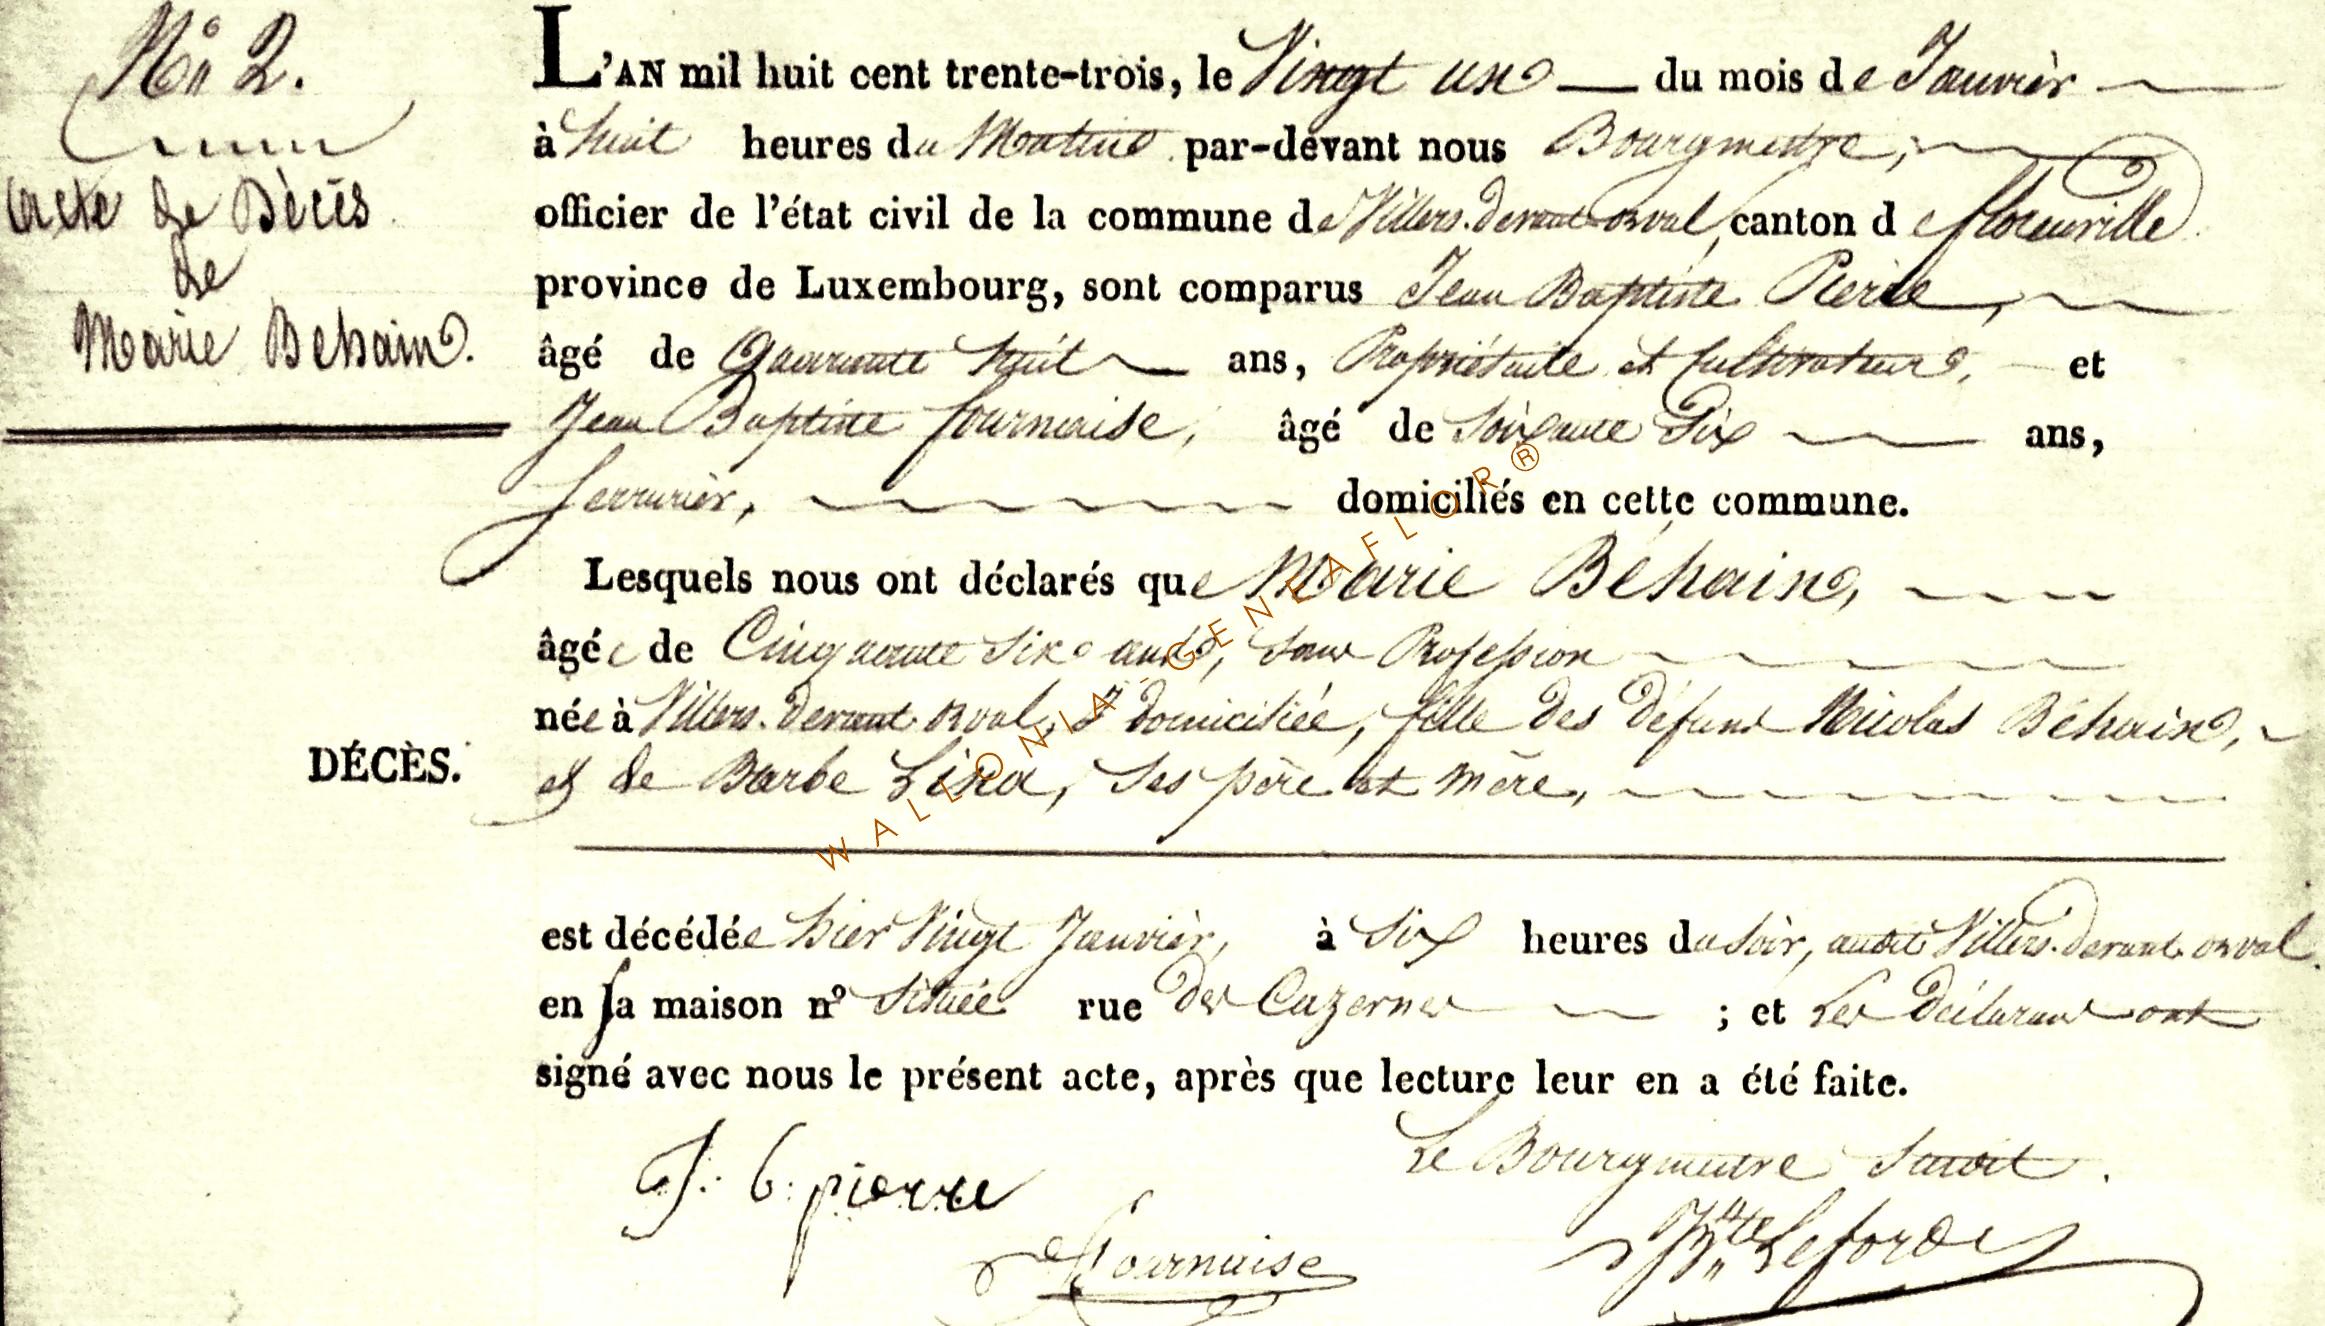 N° 2.
Acte de Décès
de
Marie Behain.
DÉCÈS.
L'AN mil huit cent trente-trois, le Vingt un du mois de Janvièr
à huit heures du Matin par-devant nous Bourgmestre,
officier de l'état civil de la commune de Villers-devant-orval, canton de florenville
province de Luxembourg, sont comparus Jean Baptiste Pierre,
âgé de Quarante huit ans, Propriétaire et Cultivateur, et
Jean Baptiste fournaise, âgé de Soixante Dix ans,
Serrurièr, domiciliés en cette commune.
Lesquels nous ont déclarés que Marie Béhain,
âgée de Cinquante Six ans, Sans Profession
née à Villers-devant-orval, y domiciliée, fille des défuns Nicolas Béhain,
et de Barbe Lina, Ses père et mère,
est décédée hier Vingt Janvièr, à Six heures du Soir, audit Villers-devant-orval
en sa maison n° Située rue des Cazernes ; et Les Déclarans ont
signé avec nous le présent acte, après que lecture leur en a été faite.
Le Bourgmestre Sudit.
J: b: pierre
fournaise
WALLONIA-GENEAFLOR®